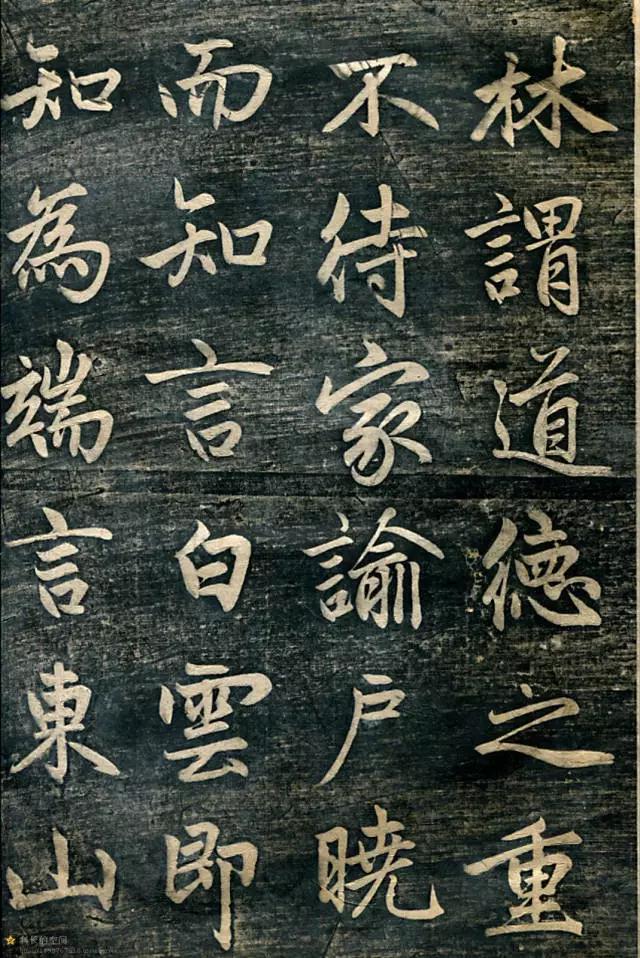 林謂道德之重
不待家諭戸曉
而知言白雲即
知為端言東山